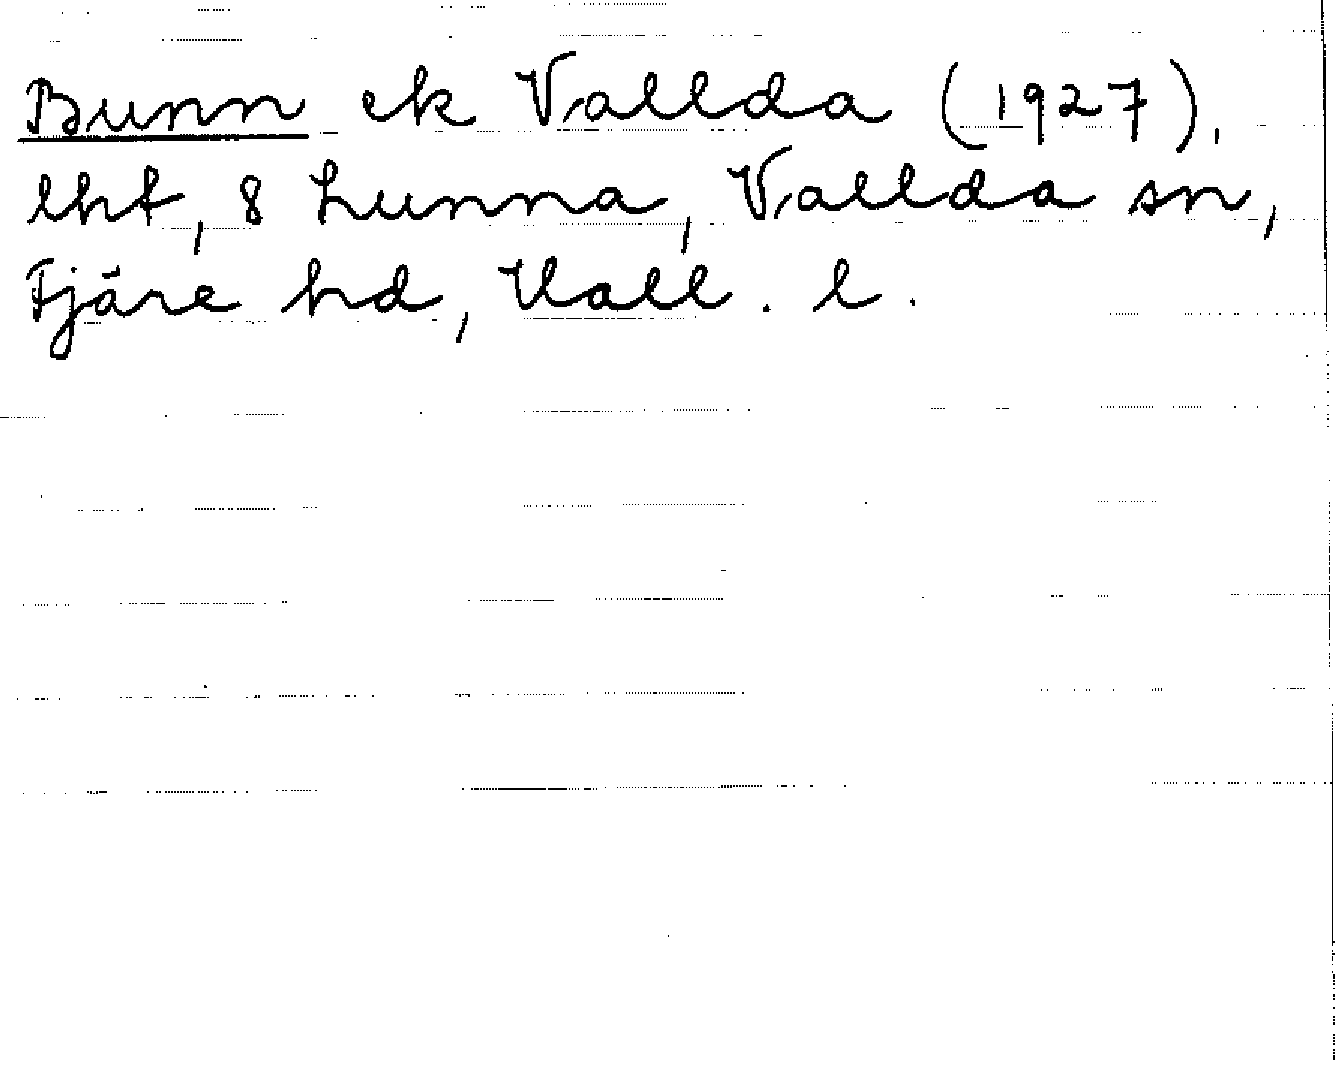 Bunn ek Vallda (1927),
lht, 8 Lunna, Vallda sn,
Fjäre hd, Hall. l.